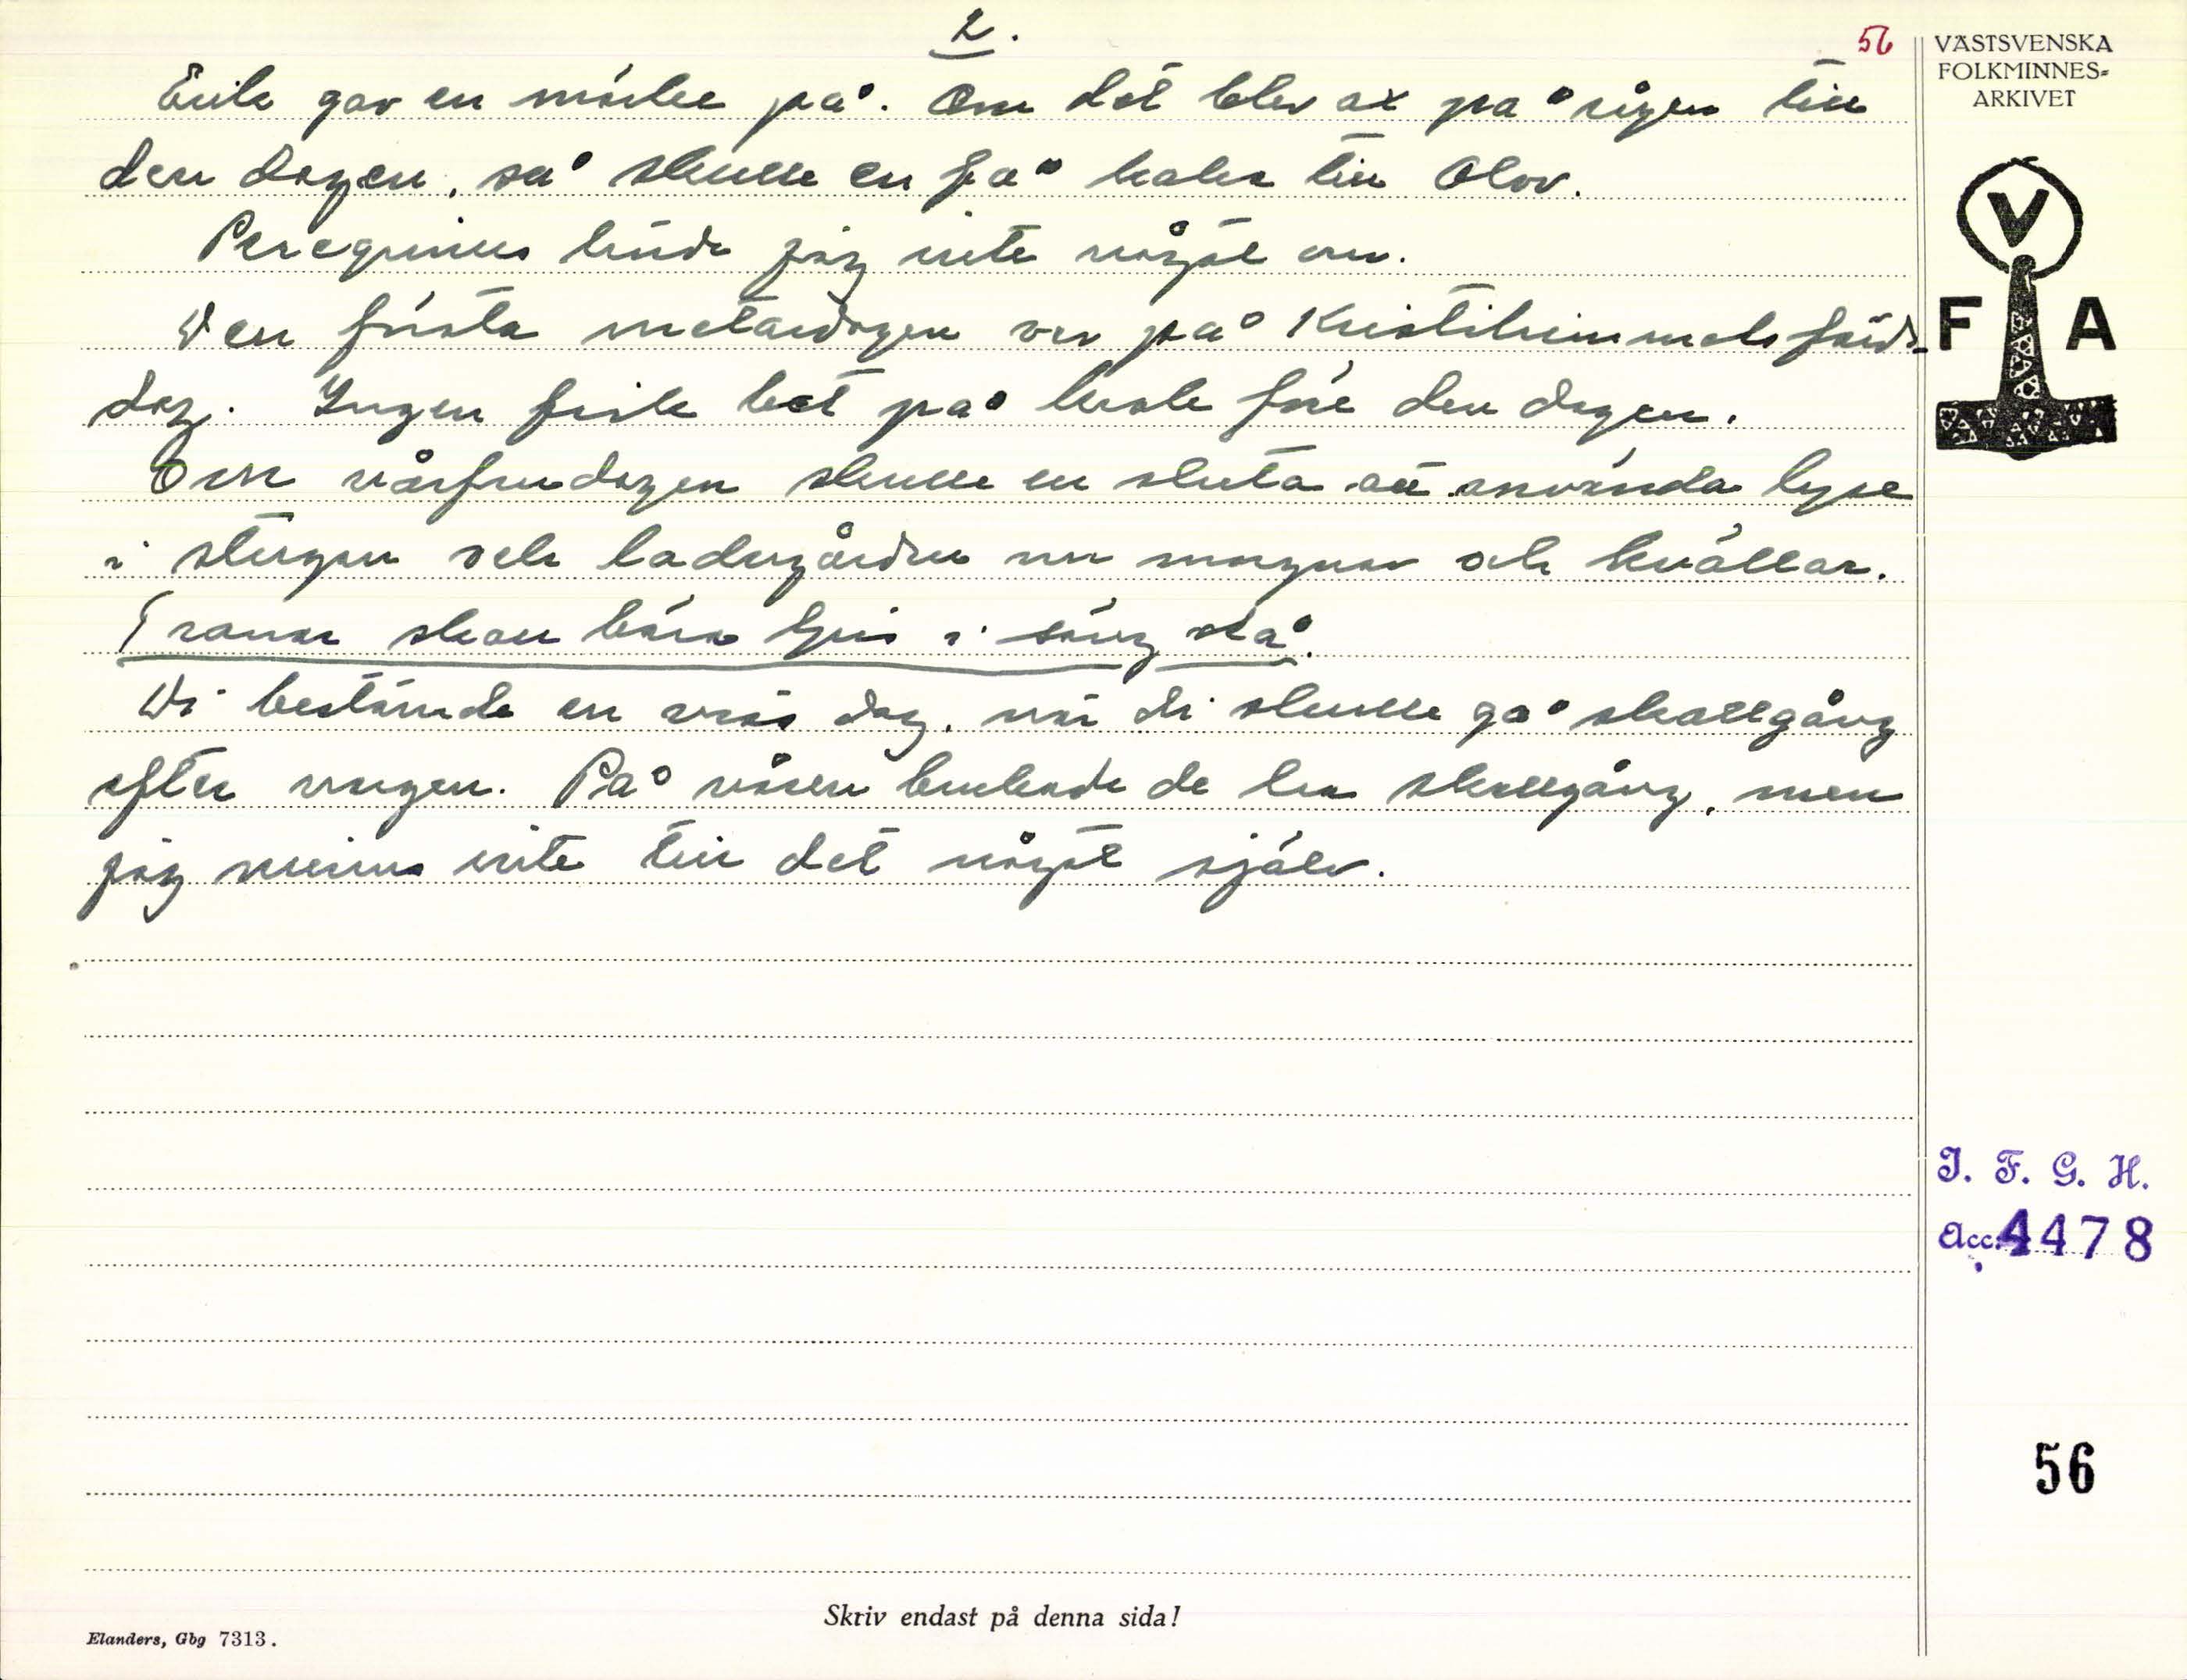 2.
56
Erik gav en märke på. Om det blev ax på rågen till
den dagen, så skulle en få kaka till Olov.
Peregrinus hörde jag inte något om.
Den första metardagen var på Kristihimmelsfärds-
dag. Ingen fisk bet på krok före den dagen.
Om vårfrudagen skulle en sluta att använda lyse
i stugan och ladugården om morgnar och kvällar.
Tranan skall bära ljus i säng då.
Di bestämde en viss dag, när di skulle gå skallgång
efter vargen. På våren brukade de ha skallgång, men
jag minns inte till det något själv.
VÄSTSVENSKA
FOLKMINNES-
ARKIVET
V
F A
I. F. G. H.
Acc. 4478
56
Skriv endast på denna sida!
Elanders, Gbg 7313.